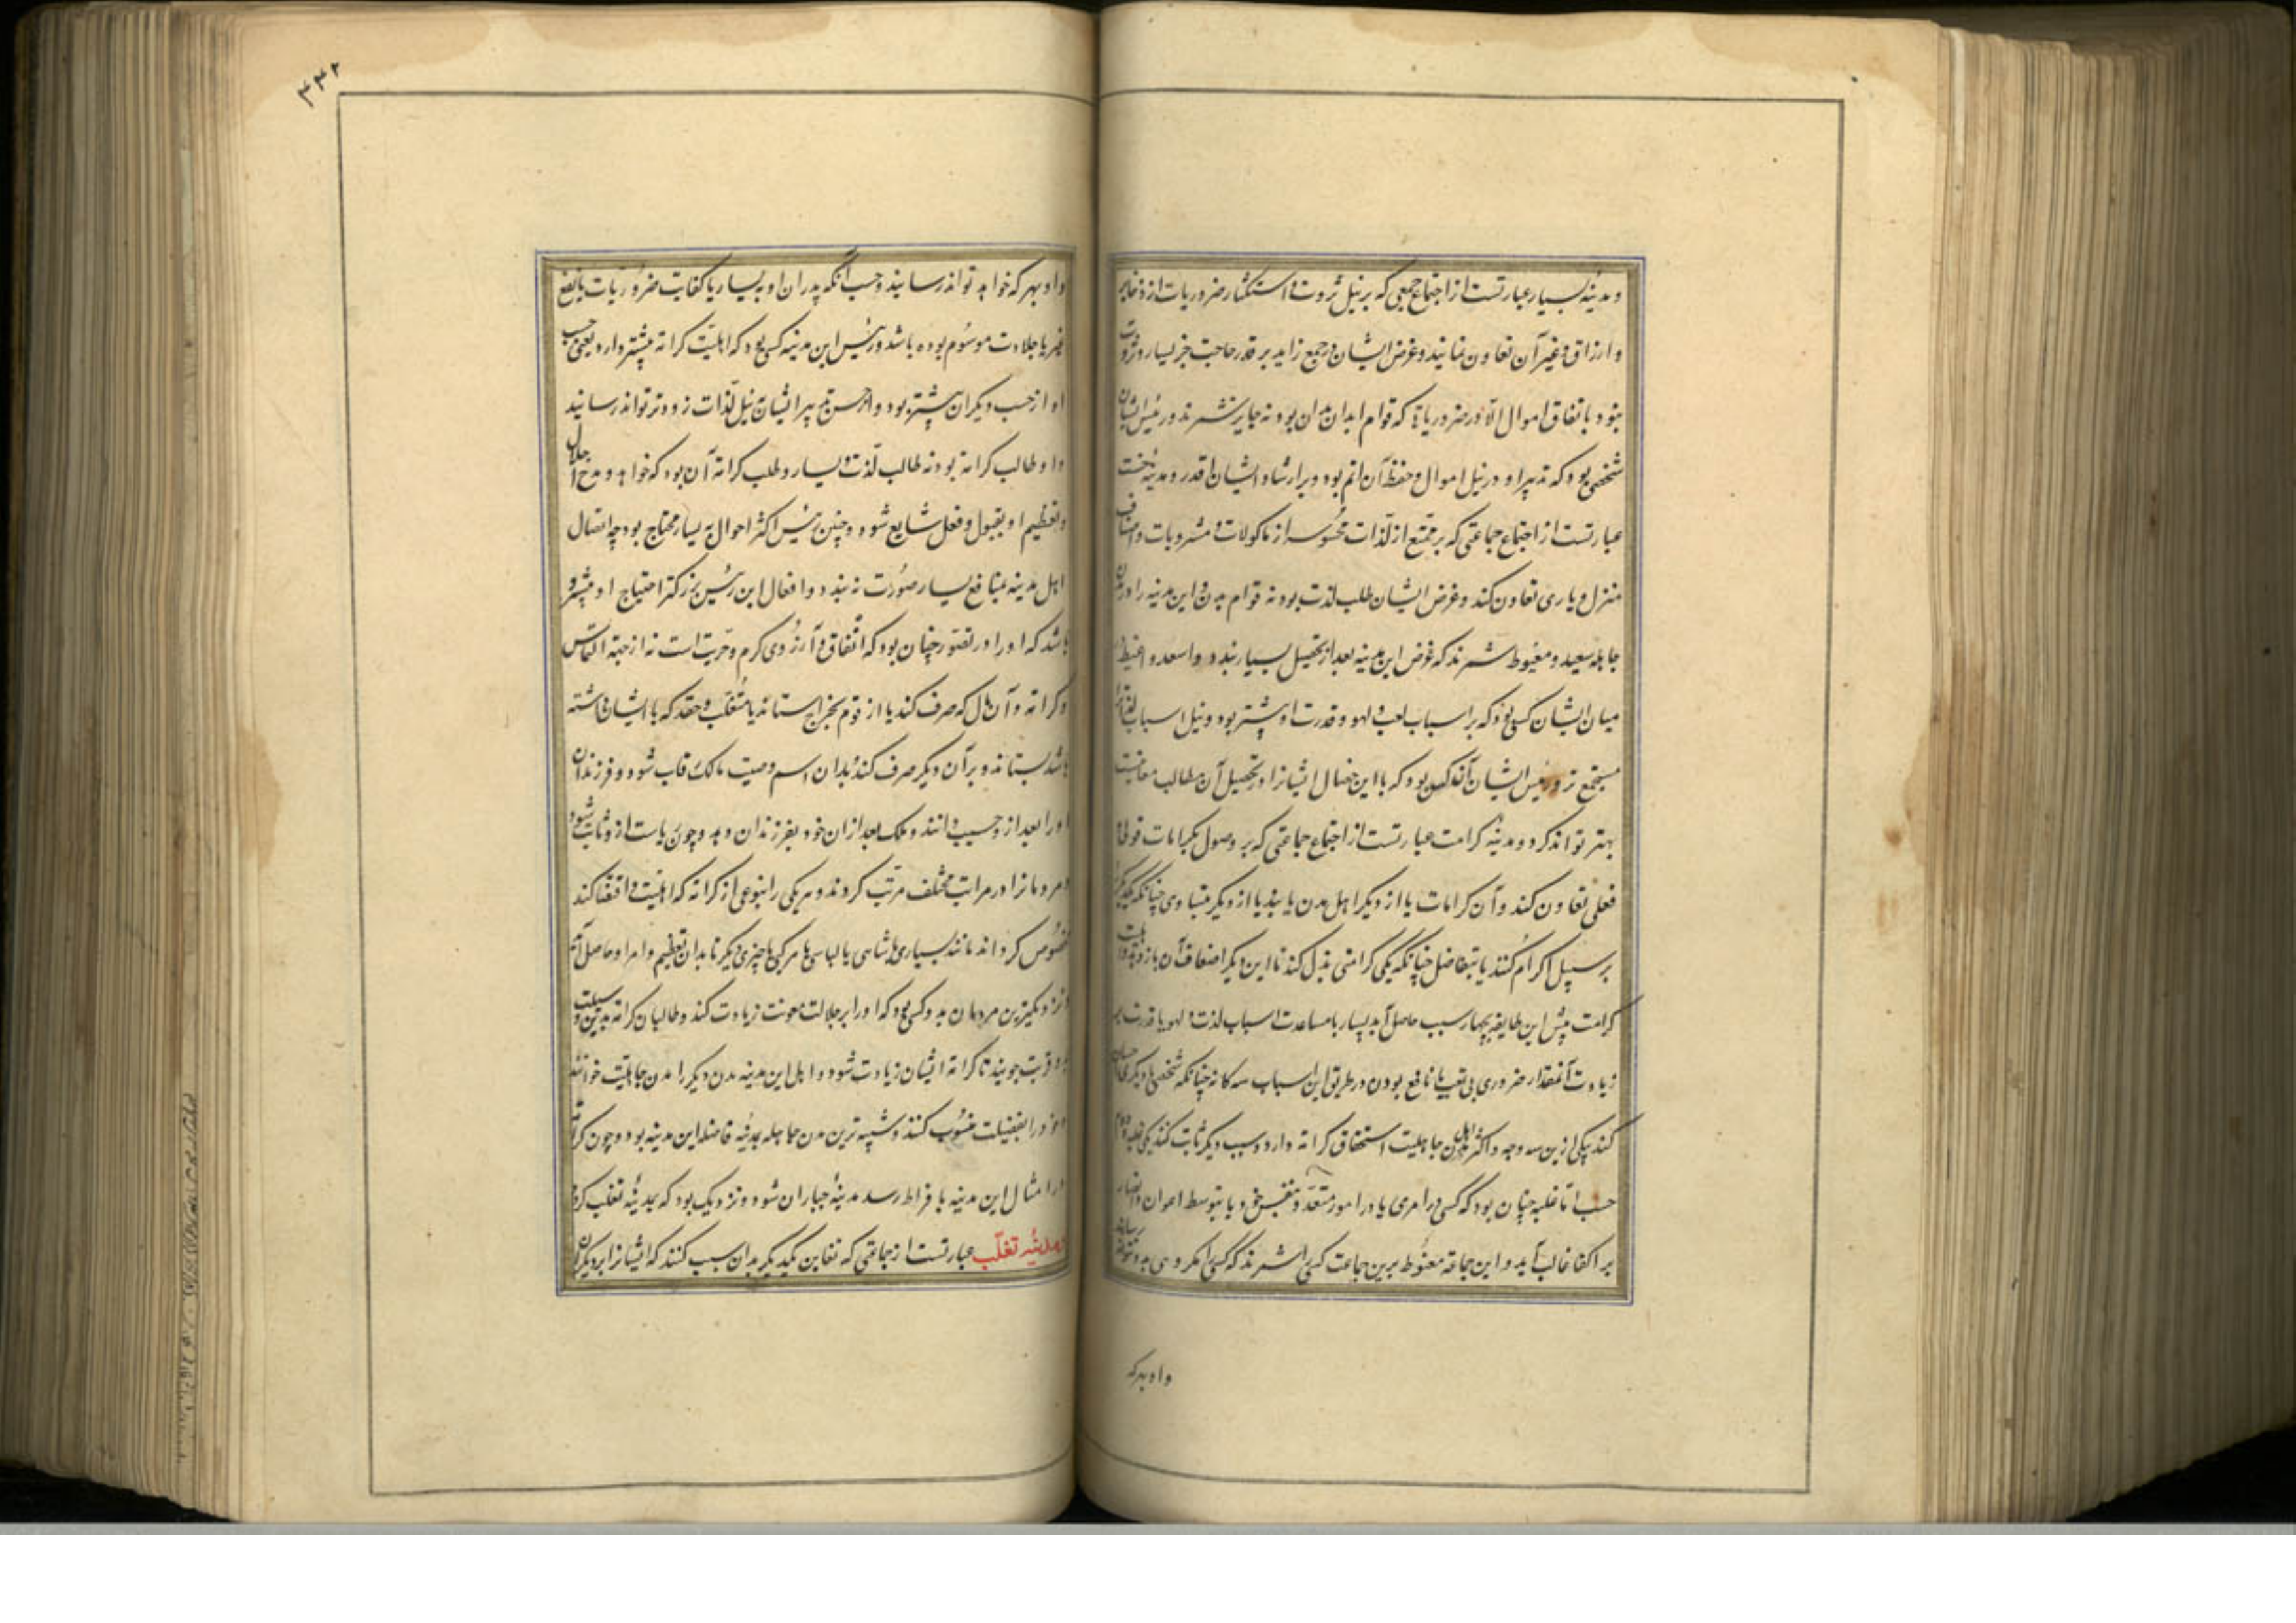 ومدینهٔ یسار عبارتست از اجتماع جمعی که بر نیل ثروت و استکثار ضروریات از ذخایر
و ارزاق و غیر آن تعاون نمایند و غرض ایشان در جمع زاید بر قدر حاجت جز یسار و ثروت
نبود باتفاق اموال الا در ضروریاتی که قوام ابدان بدان بود نه جایز نشمرند و رئیس ایشان
شخصی بود که تدبیر او در نیل اموال و حفظ آن اتم بود و بر ارشاد ایشان اقدر و مدینهٔ خست
عبارتست از اجتماع جماعتی که بر تمتع از لذات محسوسه از ماکولات و مشروبات و اصناف
منزل و یاری تعاون کنند و غرض ایشان طلب لذت بود نه قوام بدن و این مدینه را در مدن
جاهله سعید و مغبوط شمرند که غرض این مدینه بعد از تحصیل یسار بندد و اسعد و اغبط
میان ایشان کسی بود که بر اسباب لعب و لهو قدرت او بیشتر بود و نیل اسباب لذت را
مستجمع تر و رئیس ایشان آنکس بود که با این خصال ایشانرا در تحصیل آن مطالب معاونت
بهتر تواند کرد و مدینهٔ کرامت عبارتست از اجتماع جماعتی که بر وصول بکرامات قولی و
فعلی تعاون کنند و آن کرامات یا از دیگر اهل مدن یابند یا از دیگر متساوی چنانکه یکدیگر را
بر سبیل اکرام کنند یا بتفاضل چنانکه یکی کرامتی بذل کند تا این دیگر اضعاف آن باز دهد و اهلیت
کرامت پیش این طایفه بچهار سبب حاصل آید یسار یا مساعدت اسباب لذت و لهو یا قدرت بر
زیادت آنمقدار ضروری بی تعب یا نافع بودن در طریق این اسباب سه کانه چنانکه شخصی با دیگری احسان
کند بیکی ازین سه وجه و اکثر اهل مدن جاهلیت استحقاق کرامة دارد و سبب دیگر ثابت کنند یکی غلبه و دوم
حسب اما غلبه چنان بود که کسی در امری یا در امور متعدد بنفس خود یا بتوسط اعوان و انصار
بر اکفا غالب آید و این جماعة مغبوط برین جماعت کسی را شمرند که کسی مکروهی بدو نتواند رسانید
و او بهر که
۴۴۲
و او بهر که خواهد تواند رسانید و حسب آنکه پدران او به یسار یا کفایت ضروریات یا نفع
غیر یا جلادت موسوم بوده باشد و رئیس این مدینه کسی بود که اهلیت کرامة بیشتر دارد یعنی حسب
او از حسب دیگران بیشتر بود و از حسن تدبیر ایشان نیل لذات زودتر تواند رسانید
و او طالب کرامة بود نه طالب لذت و یسار و طلب کرامة آن بود که خواهد و مدح و اجلال
و تعظیم او بقول و فعل شایع شود و چنین رئیس اکثر احوال به یسار محتاج بود چه ایصال
اهل مدینه بمنافع بی یسار صورت نبندد و افعال این رئیس بزرکتر احتیاج او بیشتر
باشد که او را در تصور چنان بود که انفاق و آرزوی کرم و حریت است نه از جهة التماس
کرامة و آن مال که صرف کند یا از قوم بخراج ستاند یا متغلب و حقد که با ایشان داشته
باشد بستاند و بر آن دیگر صرف کند بدان اسم وصیت مالک رقاب شود و فرزندان
او را بعد از و حسیب دانند و ملک بعد از ان خود بفرزندان دهد و چون ریاست از و ثابت شود
مردمانرا در مراتب مختلف مرتب کرداند و هر یکی را بنوعی از کرامة که اهلیت و اقتضا کند
مخصوص کرداند مانند یساری یا ثنائی یا لباسی یا مرکبی یا چیزی دیگر تا بدان تعظیم و امر او حاصل آید
و نزدیکترین مردمان بدو کسی بود که او را بر جلالت معونت زیادت کند و طالبان کرامة بدین وسیلت
بدو قربت جویند تا کرامة ایشان زیادت شود و اهل این مدینه مدن دیگر را مدن جاهلیت خوانند
و خود را بفضیلت منسوب کنند و شبیه ترین مدن جاهله بمدینه فاضله این مدینه بود و چون کرامة
در امثال این مدینه بافراط رسد مدینهٔ جباران شود و نزدیک بود که بمدینهٔ تغلب کردد
و مدینهٔ تغلب عبارتست از جماعتی که تعاون یکدیگر بدان سبب کنند که ایشانرا بر دیگران